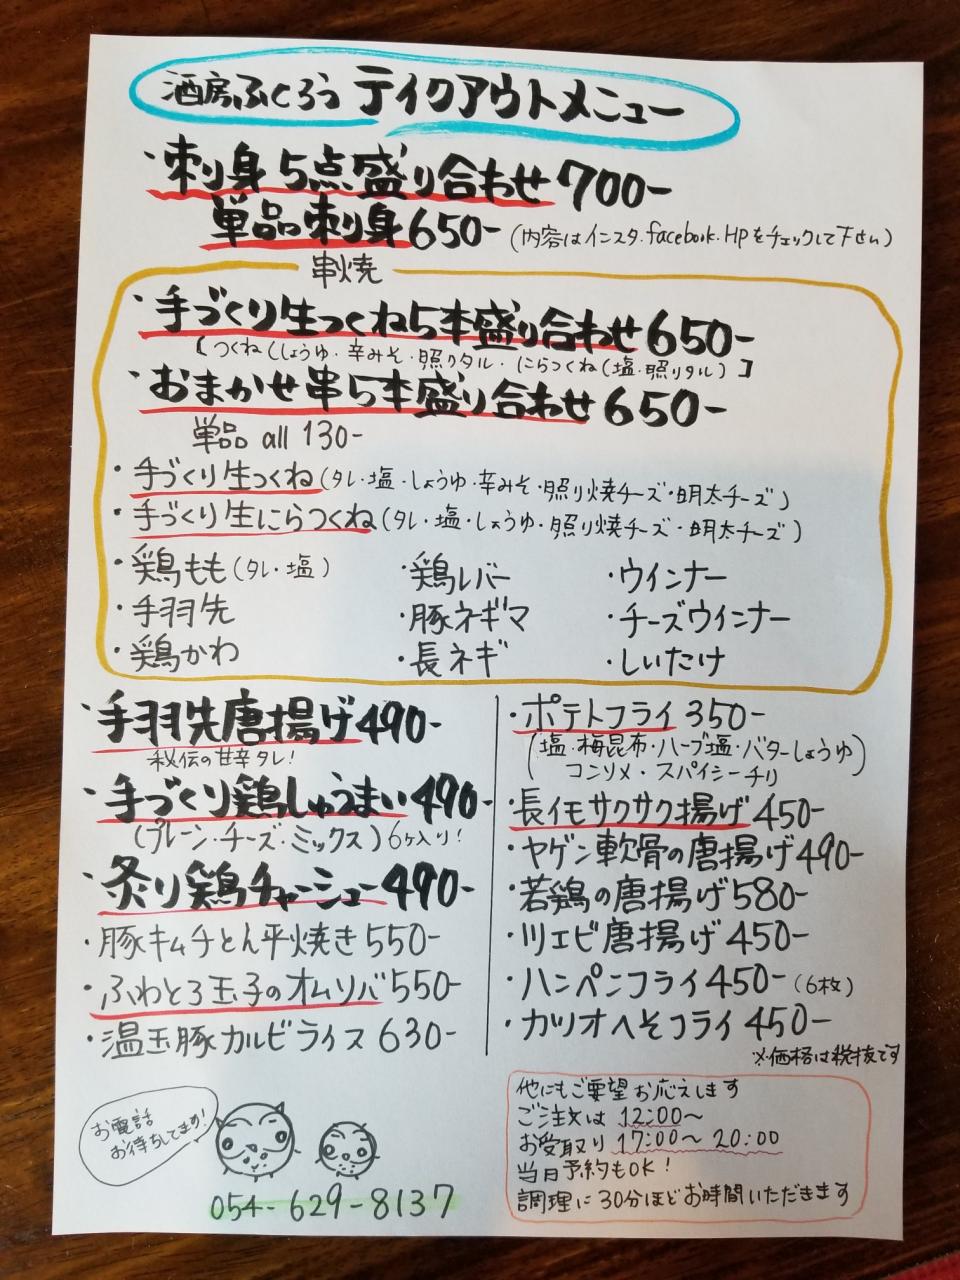 酒房ふくろう テイクアウトメニュー
・刺身5点盛り合わせ700-
単品刺身650-(内容はインスタ.facebook.HPをチェックして下せい)
串焼
・手づくり生つくね5本盛り合わせ650-
【つくね(しょうゆ・辛みそ・照りタル・にらつくね(塩・照りタル)】
・おまかせ串5本盛り合わせ650-
単品 all 130-
・手づくり生つくね(タレ・塩・しょうゆ・辛みそ・照り焼チーズ・明太チーズ)
・手づくり生にらつくね(タレ・塩・しょうゆ・照り焼チーズ・明太チーズ)
・鶏もも(タレ・塩)
・手羽先
・鶏かわ
・鶏レバー
・豚ネギマ
・長ネギ
・ウインナー
・チーズウインナー
・しいたけ
・手羽先唐揚げ490-
秘伝の甘辛タレ!
・手づくり鶏しゅうまい490-
(プレーン・チーズ・ミックス)6ヶ入り!
・炙り鶏チャーシュー490-
・豚キムチとん平焼き550-
・ふわとろ玉子のオムソバ550-
・温玉豚カルビライス630-
・ポテトフライ350-
(塩・梅昆布・ハーブ塩・バターしょうゆ
コンソメ・スパイシーチリ)
・長イモサクサク揚げ450-
・ヤゲン軟骨の唐揚げ490-
・若鶏の唐揚げ580-
・川エビ唐揚げ450-
・ハンペンフライ450-(6枚)
・カツオへそフライ450-
※価格は税抜です
お電話
お待ちしてます!
054-629-8137
他にもご要望お応えします
ご注文は 12:00〜
お受取り 17:00〜20:00
当日予約もOK!
調理に30分ほどお時間いただきます